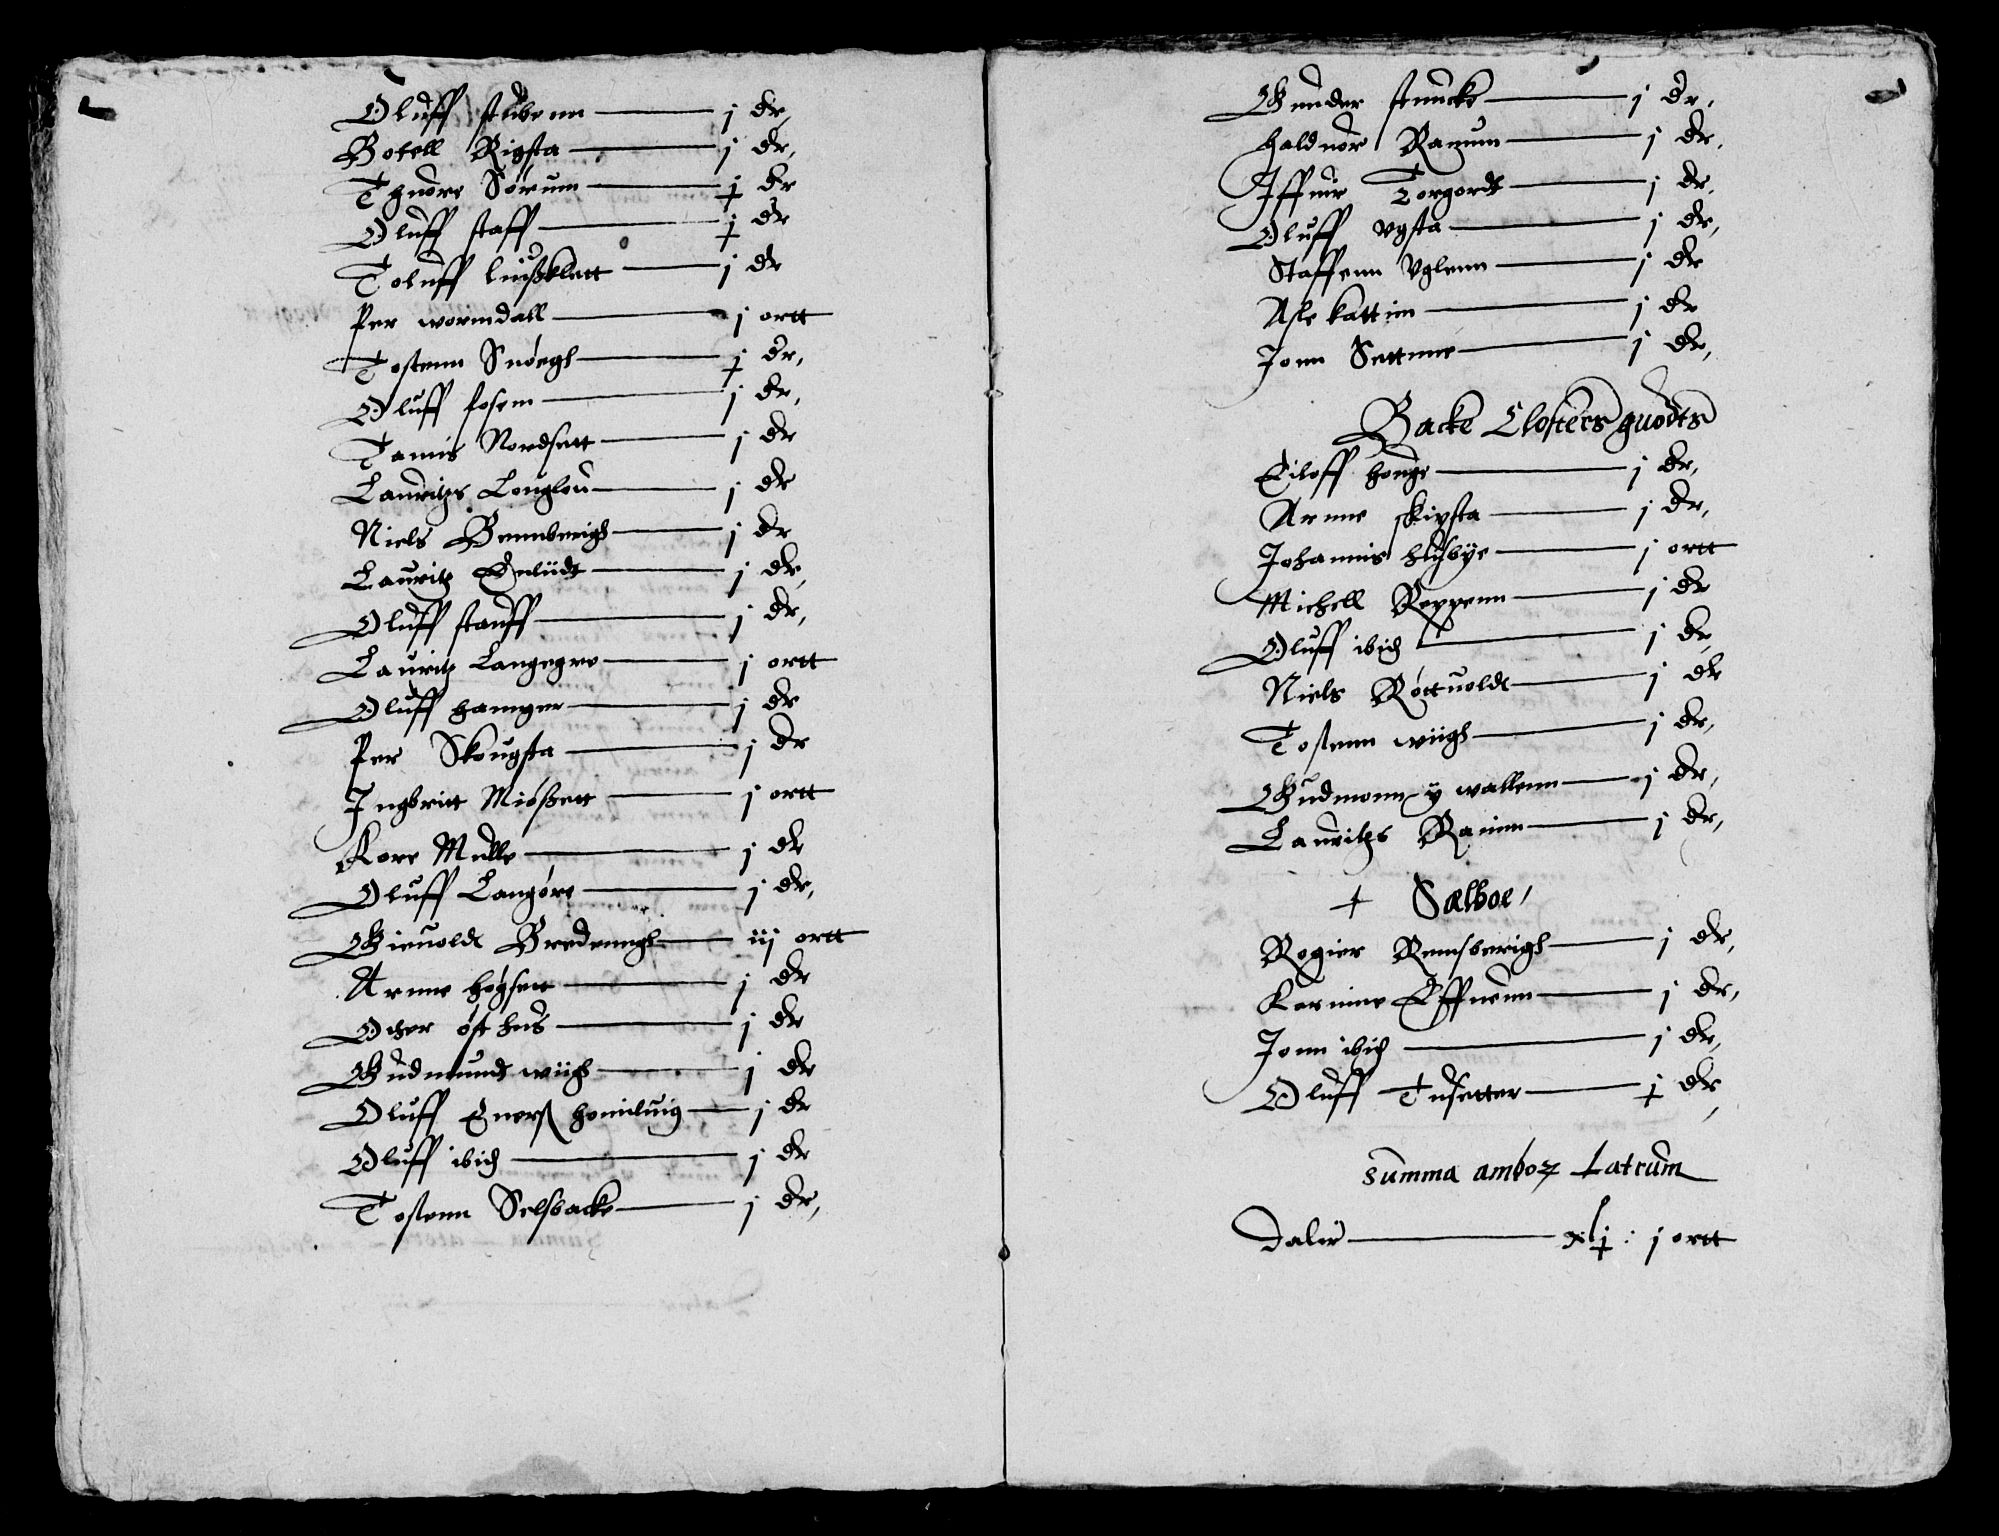 Oluff stubenn j dr,
Botell Rigsta j dr,
Thuore Sørum j dr
Oluff staff j dr
Toluff liußklett j dr
Per wormdall j ortt
Tostenn Snøegh j dr,
Oluff fosem j dr,
Tamis Nordsett j dr
Lauritzs Longlou j dr
Niels Bennberigh j dr
Lauritz j dr,
Oluff stauff j dr,
Lauritz Langegre j ortt
Oluff hamger j dr
Per Skougsta j dr
Ingbritt Mioßett j ortt
Kore Mulle j dr
Oluff Langøre j dr,
Gieuoldt Bredeuegh iij ortt
Arnne høgsett j dr
Other øst hus j dr
Gudmundt wiigh j dr
Oluff j dr
Oluff ibid j dr
Tostenn Selsbacke j dr,
Gunder stuucke j dr,
halduor Ranum j dr,
Iffuir Torgordt j dr,
Oluff vgsta j dr,
Staffenn Vglenn j dr
Asle kattim j dr
Jonn Settnne j dr,
Backe Closters guodts
Eiloff honge j dr,
Arnne skipsta j dr,
Johannis husbÿe j ortt
Michell Reppenn j dr
Oluff ibid j dr,
Niels Røttuoldt j dr
Tostenn wiigh j dr,
Gudmonn ÿ wallenn j dr,
Lauritzs Ranim j dr,
+ Sælboe,
Rogier Rensberigh j dr,
Karinne Effuenn j dr,
Jonn ibid j dr,
Oluff Tusetter j dr,
summa amboz Latrum
Daler xlj : j ortt